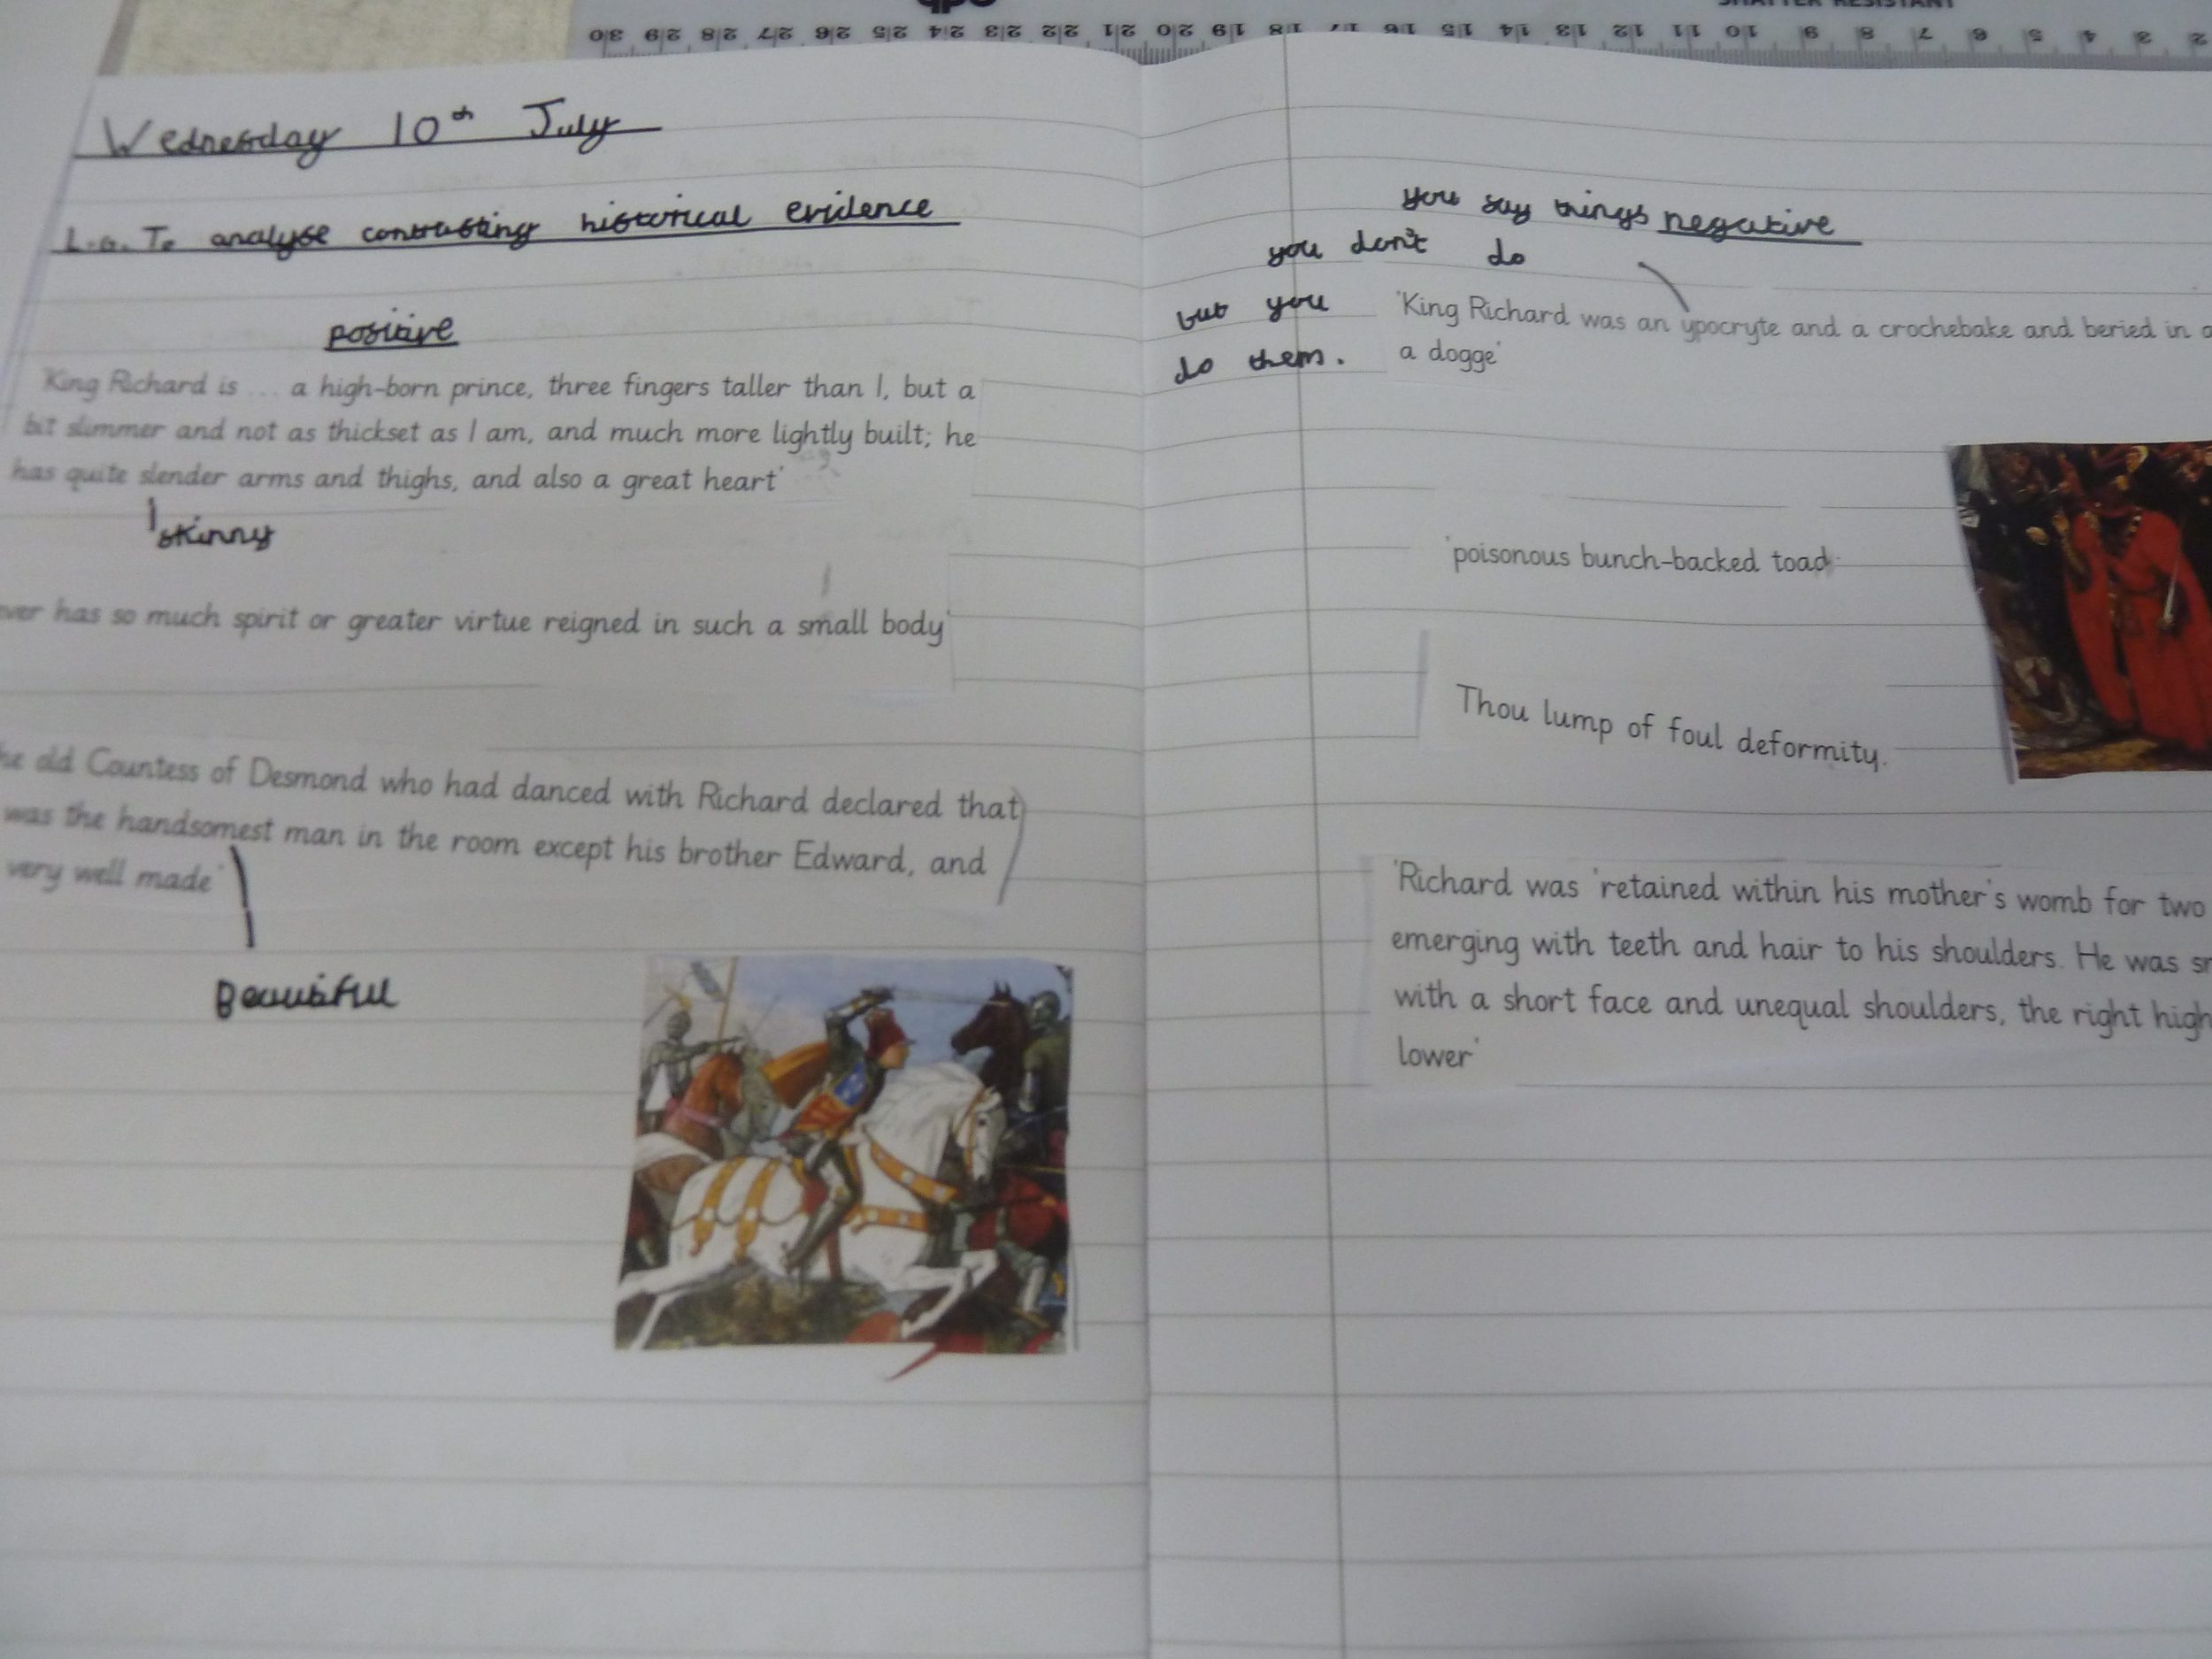 30 29 28 27 26 25 24 23 22 21 20 19 18 17 16 15 14 13 12 11 10 9 8 7 6 5 4 3 2
SHATTER RESISTANT
Wednesday 10th July
To analyse contrasting historical evidence
positive
'King Richard is ... a high-born prince, three fingers taller than I, but a
bit slimmer and not as thickset as I am, and much more lightly built; he
has quite slender arms and thighs, and also a great heart'
skinny
has so much spirit or greater virtue reigned in such a small body'
old Countess of Desmond who had danced with Richard declared that
was the handsomest man in the room except his brother Edward, and
very well made'
Beautiful
negative
you say things
you don't do
but you
do them.
'King Richard was an ypocryte and a crochebake and beried in
a dogge'
'poisonous bunch-backed toad
Thou lump of foul deformity.
'Richard was 'retained within his mother's womb for two
emerging with teeth and hair to his shoulders. He was
with a short face and unequal shoulders, the right
lower'